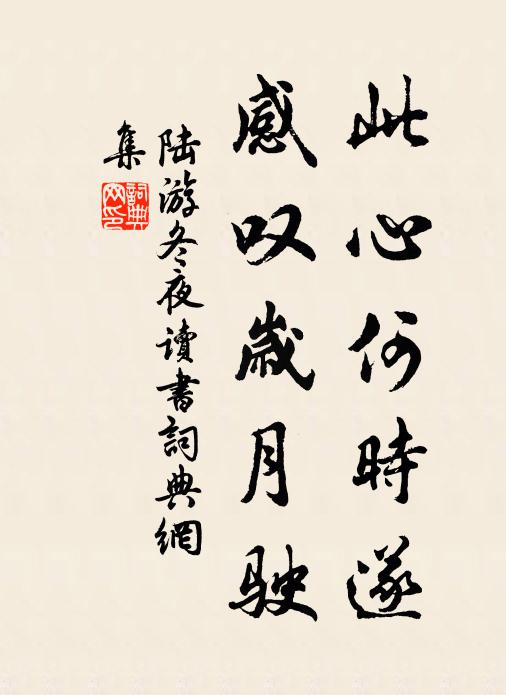 此心何時遂
感叹歲月駛
陸游冬夜讀書詞典網
集
詞典网印